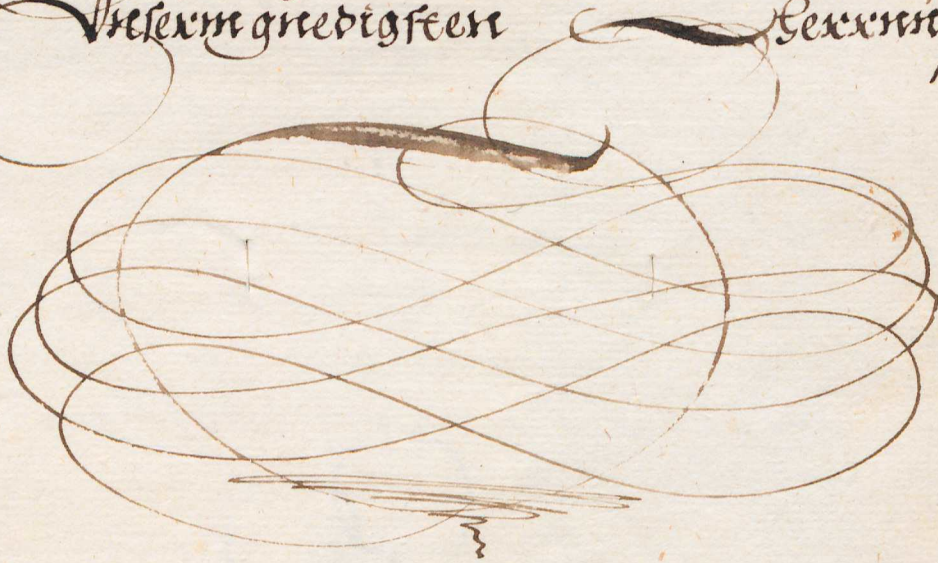 Vnserm gnedigsten Herrnn